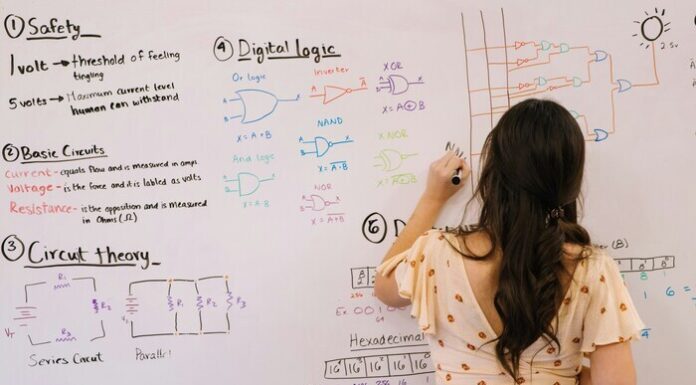 ① Safety
1 volt → threshold of feeling
tingling
5 volts → Maximum current level
human can withstand
② Basic Circuits
Current - equals flow and is measured in amps
Voltage - is the force and it is labled as volts
Resistance - is the opposition and is measured
in Ohms (Ω)
③ Circut theory
R₁
R₂
R₃
V_T
Series Circut
R₁
R₂
R₃
Parallel
④ Digital logic
Or logic
A
B
X
X = A + B
Inverter
A
A̅
XOR
A
B
X
X = A ⊕ B
NAND
A
B
X
X = A·B
And logic
X = A·B
XNOR
X = A⊕B
NOR
X = A+B
2.5v
⑤ D
(B)
Ex
Hexadecimal
16⁴ 16³ 16² 16¹ 16⁰
256 16